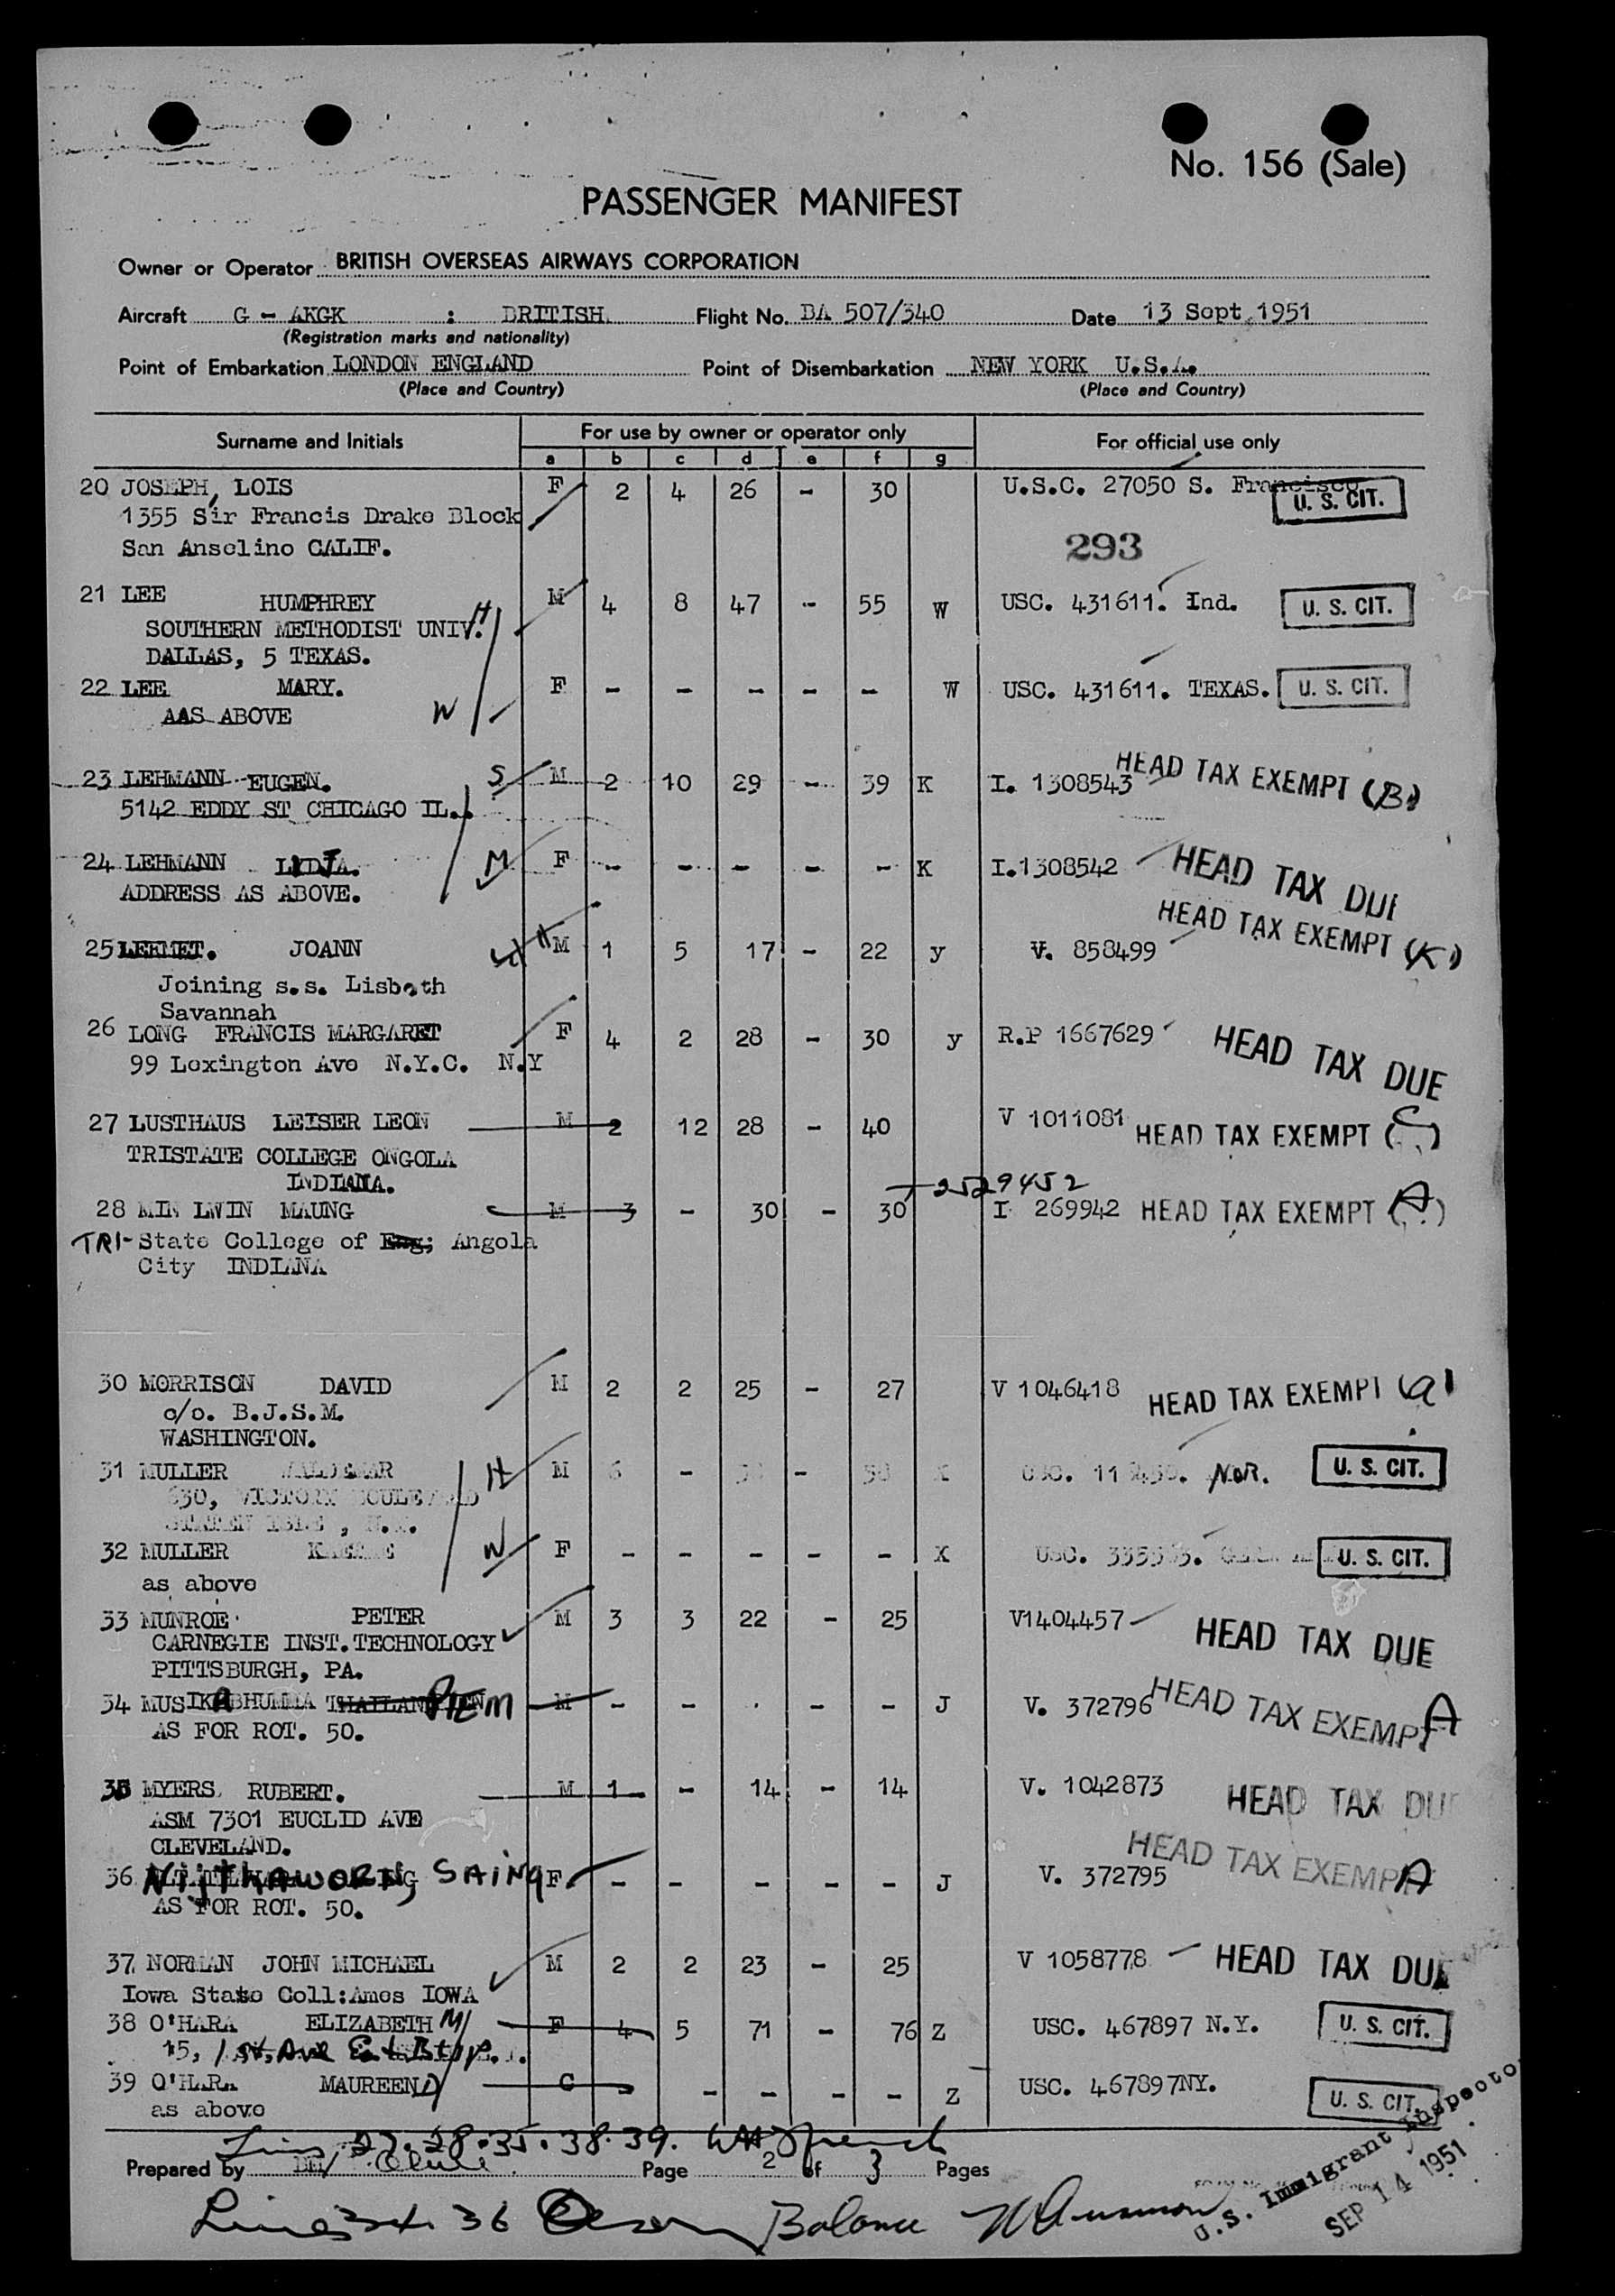 No. 156 (Sale)
PASSENGER MANIFEST
Owner or Operator BRITISH OVERSEAS AIRWAYS CORPORATION
Aircraft G - AKGK : BRITISH Flight No. BA 507/340 Date 13 Sept 1951
(Registration marks and nationality)
Point of Embarkation LONDON ENGLAND Point of Disembarkation NEW YORK U.S.A.
(Place and Country) (Place and Country)
Surname and Initials For use by owner or operator only For official use only
a b c d e f g
20 JOSEPH, LOIS F 2 4 26 - 30 U.S.C. 27050 S. Francisco U. S. CIT.
1355 Sir Francis Drake Block
San Anselino CALIF. 293
21 LEE HUMPHREY M 4 8 47 - 55 W USC. 431611. Ind. U. S. CIT.
SOUTHERN METHODIST UNIV. H
DALLAS, 5 TEXAS.
22 LEE MARY. F - - - - - W USC. 431611. TEXAS. U. S. CIT.
AAS ABOVE W
23 LEHMANN EUGEN. S M 2 10 29 - 39 K I. 1308543 HEAD TAX EXEMPT (B)
5142 EDDY ST CHICAGO IL.
24 LEHMANN LYDJA. M F - - - - - K I.1308542 HEAD TAX DUE
ADDRESS AS ABOVE.
HEAD TAX EXEMPT (K)
25 LEEMET. JOANN M 1 5 17 - 22 y V. 858499
Joining s.s. Lisboth
Savannah
26 LONG FRANCIS MARGARET F 4 2 28 - 30 y R.P 1667629 HEAD TAX DUE
99 Lexington Ave N.Y.C. N.Y
27 LUSTHAUS LEISER LEON M 2 12 28 - 40 V 1011081 HEAD TAX EXEMPT
TRISTATE COLLEGE ONGOLA
INDIANA.
2529452
28 MIN LWIN MAUNG M 3 - 30 - 30 I 269942 HEAD TAX EXEMPT (A)
TRI-State College of Eng; Angola
City INDIANA
30 MORRISON DAVID M 2 2 25 - 27 V 1046418 HEAD TAX EXEMPT (a)
c/o. B.J.S.M.
WASHINGTON.
31 MULLER WALDEMAR H M 6 - - X USC. NOR. U. S. CIT.
630, VICTORY BOULEVARD
STATEN ISLE, N.Y.
32 MULLER W F - - - - - X USC. U. S. CIT.
as above
33 MUNROE PETER M 3 3 22 - 25 V1404457 HEAD TAX DUE
CARNEGIE INST.TECHNOLOGY
PITTSBURGH, PA.
34 MUSIKABHUMMA PREM M - - - - J V. 372796 HEAD TAX EXEMPT A
AS FOR ROT. 50.
35 MYERS, RUBERT. M 1 - 14 - 14 V. 1042873 HEAD TAX DUE
ASM 7301 EUCLID AVE
CLEVELAND.
36 NITTHAWORN, SAING F - - - - - J V. 372795 HEAD TAX EXEMPT A
AS FOR ROT. 50.
37 NORMAN JOHN MICHAEL M 2 2 23 - 25 V 1058778 HEAD TAX DUE
Iowa State Coll:Ames IOWA
38 O'HARA ELIZABETH M F 4 5 71 - 76 Z USC. 467897 N.Y. U. S. CIT.
15, 1st. Ave
39 O'HARA MAUREEN D C - - - - Z USC. 467897NY. U. S. CIT.
as above
Lines 27. 28. 35. 38. 39.
Prepared by Page 2 of 3 Pages
Lines 34. 36 Balance
U.S. Immigrant Inspector
SEP 14 1951